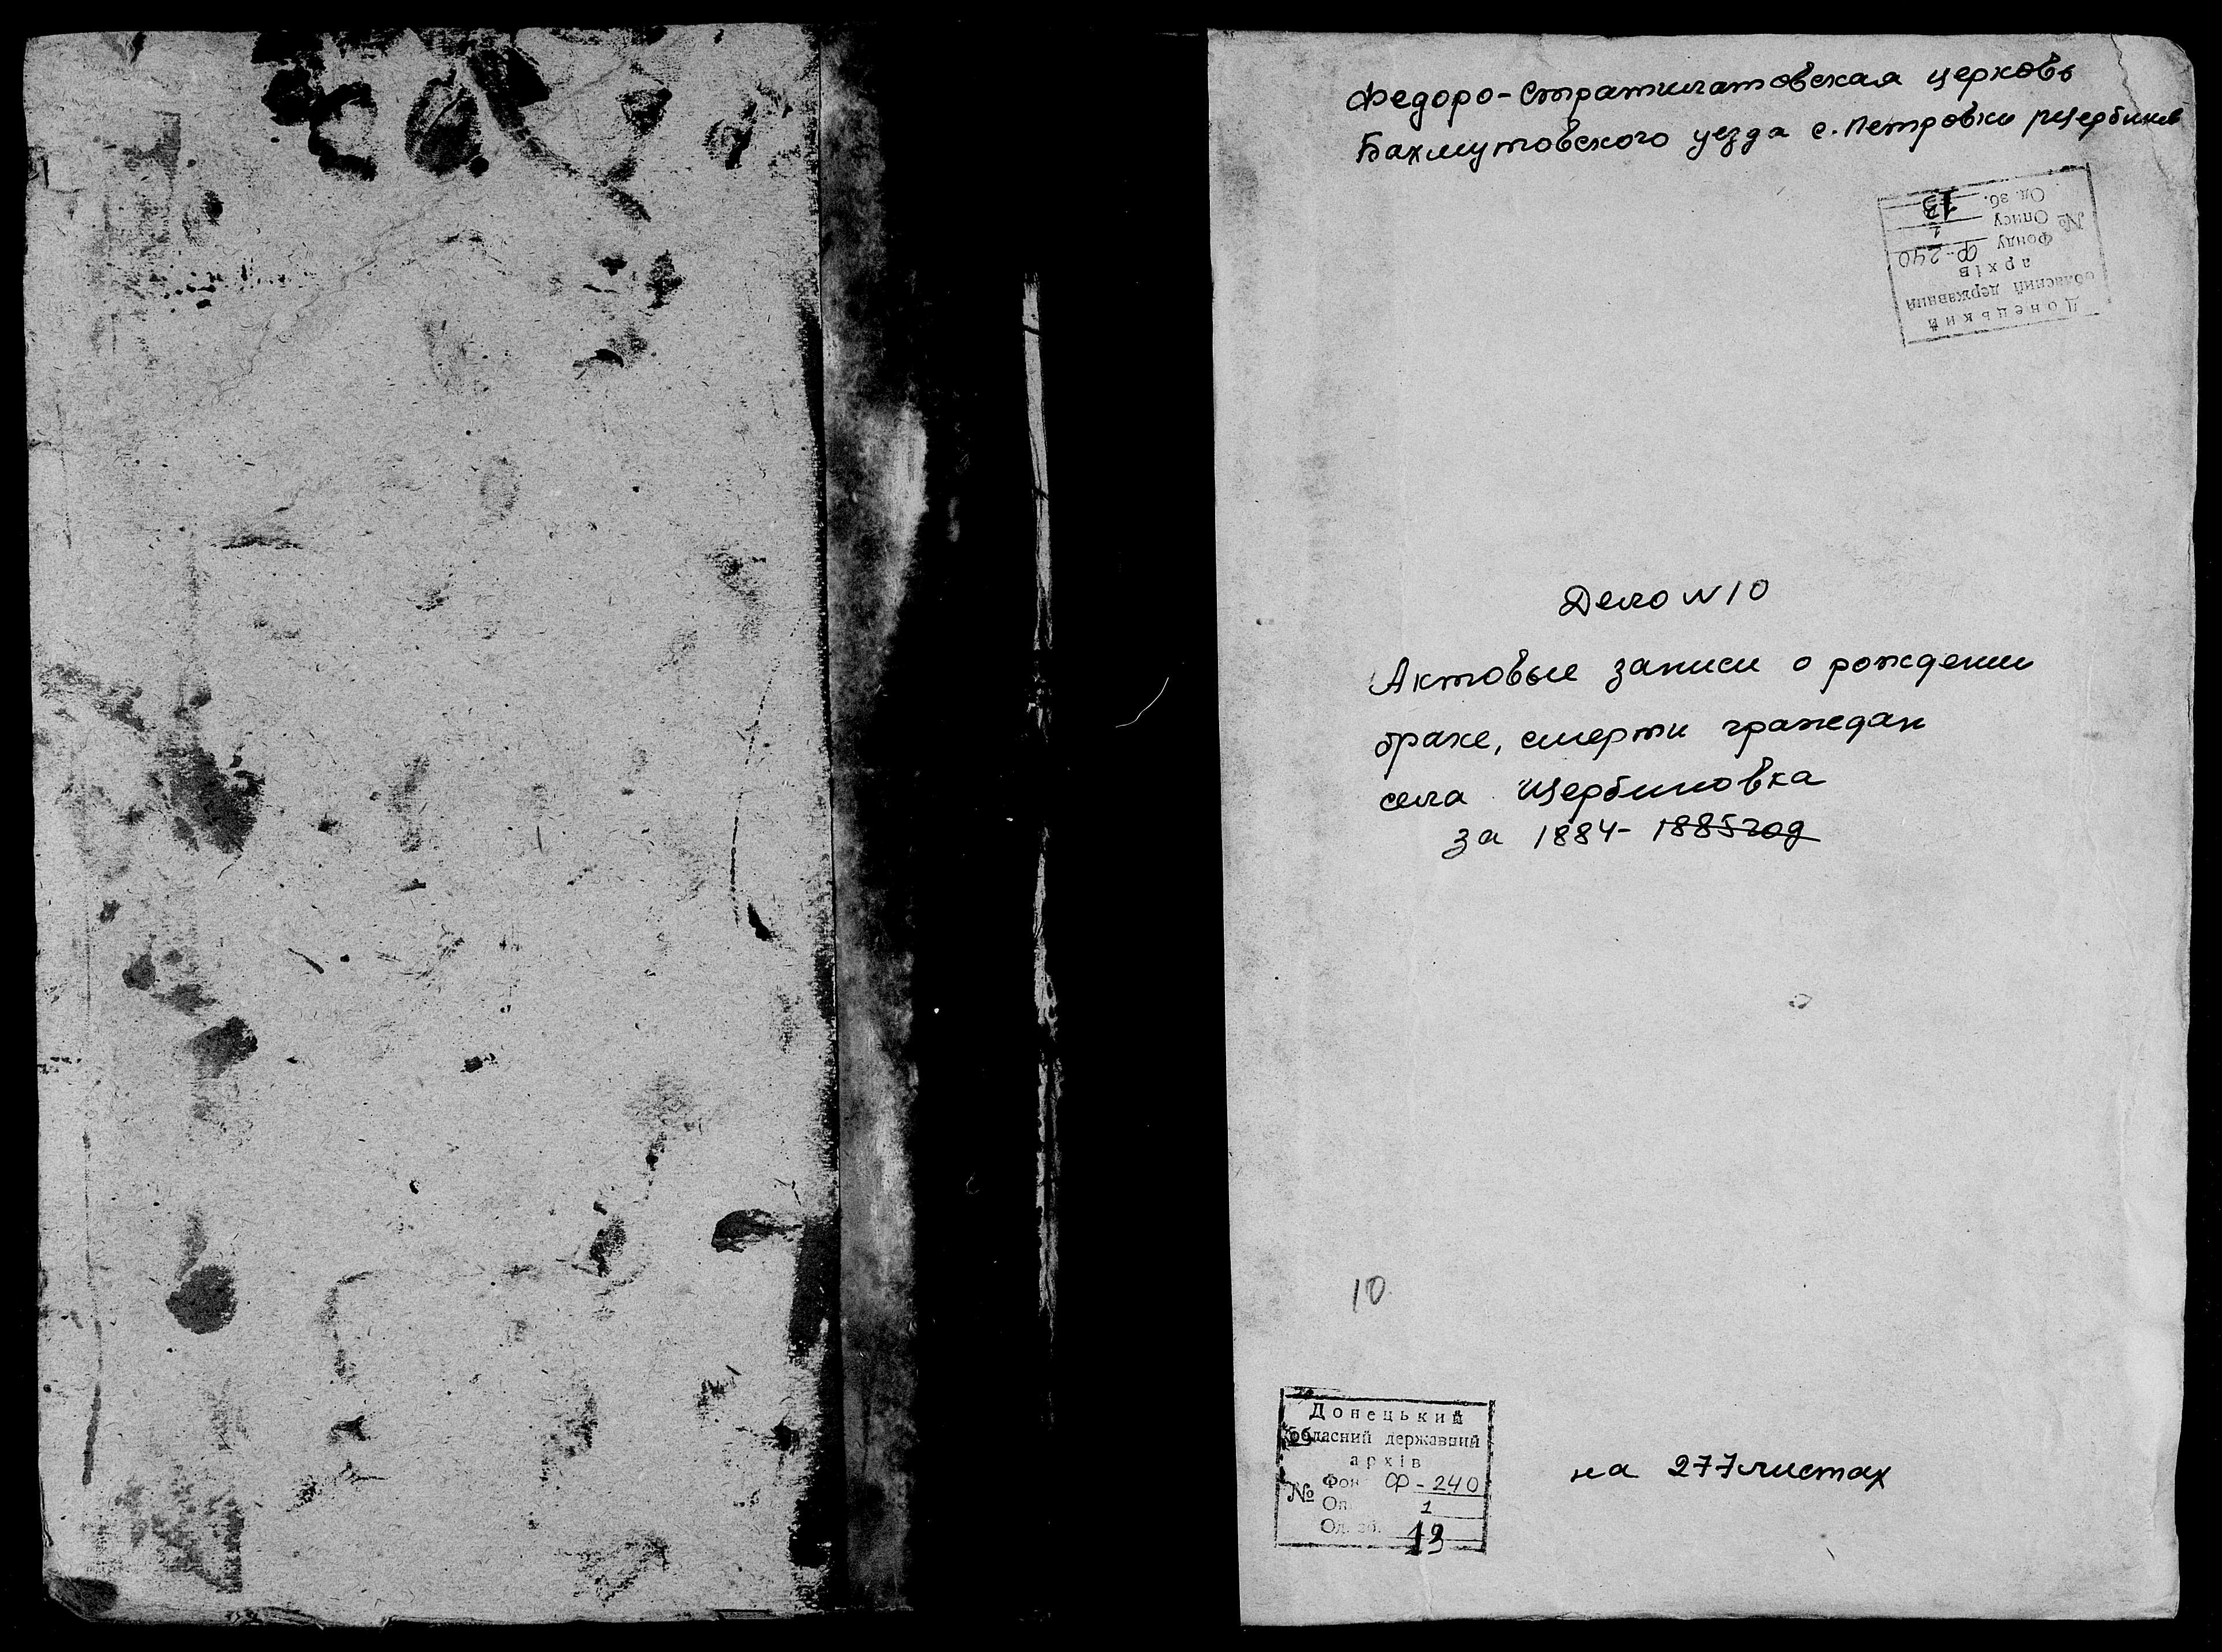 Федоро-Стратилатовская церковь
Бахмутовского уезда с. Петровки
Донецький
обласний державний
архів
№ Фонду Ф-240
Опису 1
Од. зб. 13
Дело N 10
Актовые записи о рождении
браке, смерти граждан
села Щербиновка
за 1884- 1885 год
10
Донецький
обласний державний
архів
№ Фон Ф-240
Оп. 1
Од. зб. 13
на 277 листах